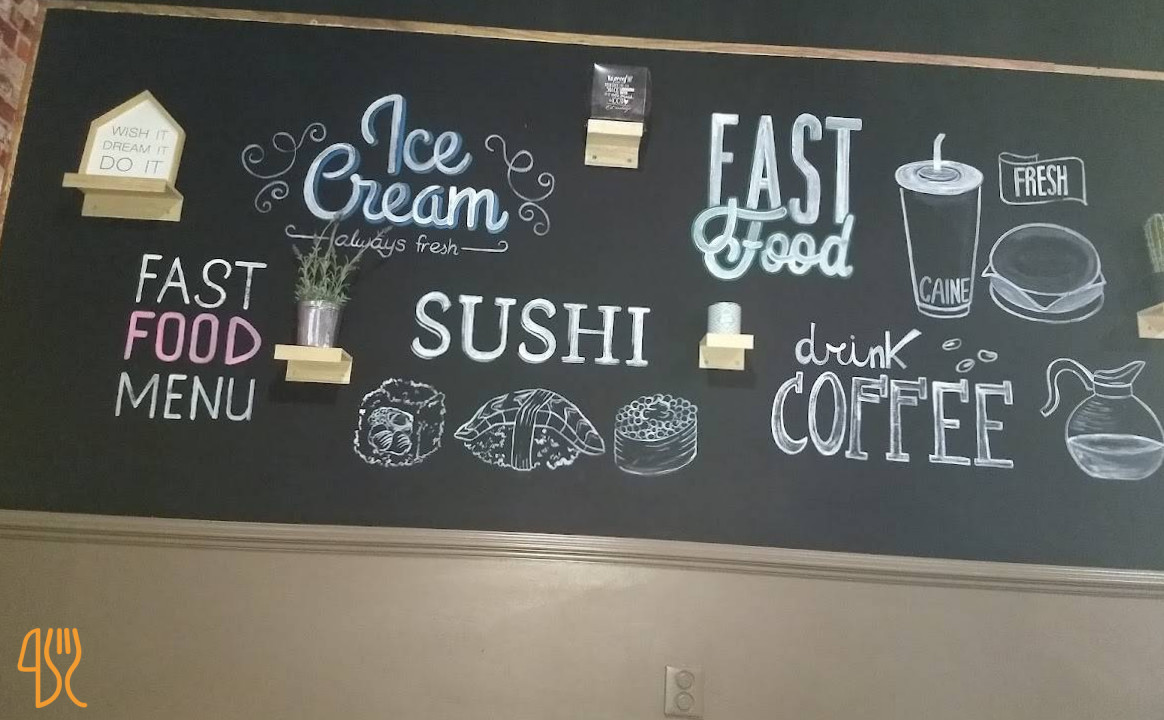 WISH IT
DREAM IT
DO IT
Ice
Cream
always fresh
FAST
FOOD
MENU
SUSHI
FAST
Food
CAINE
FRESH
drink
COFFEE